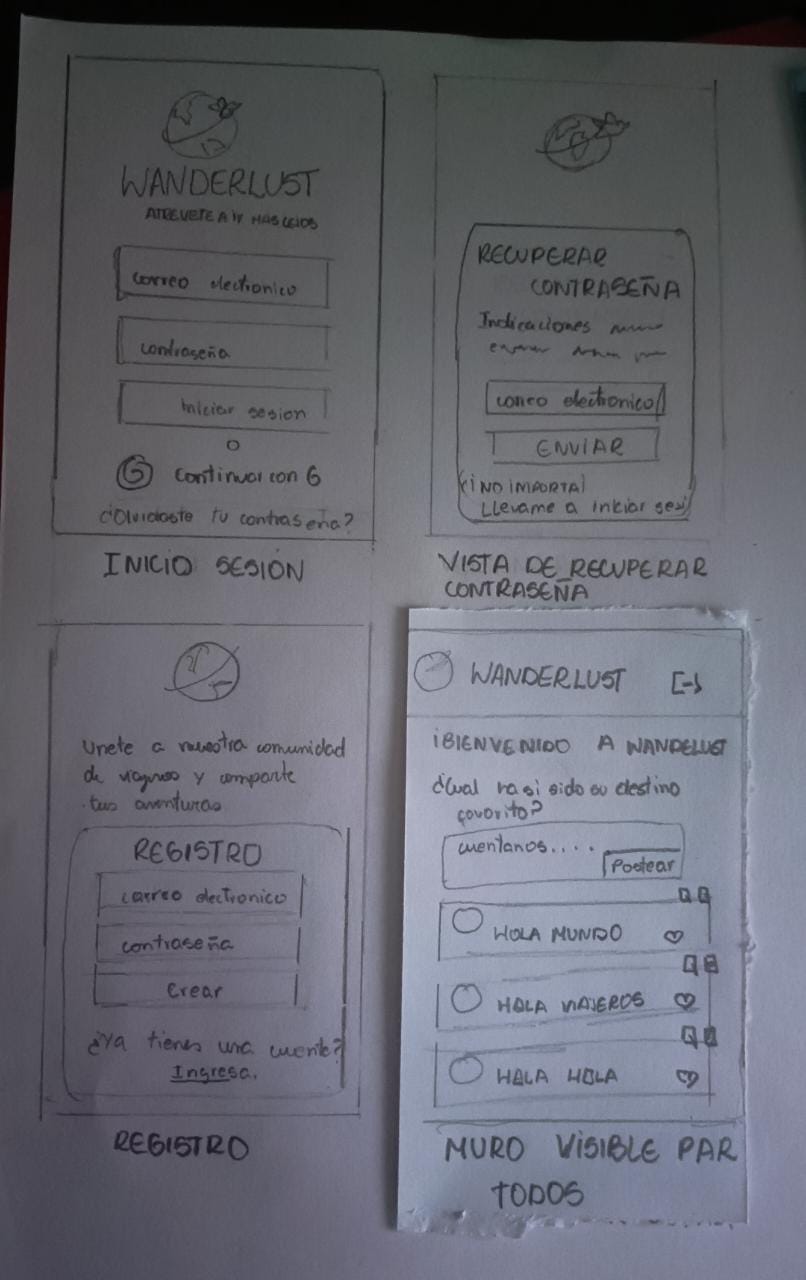 WANDERLUST
ATREVETE A IR MAS LEJOS
correo electronico
contraseña
iniciar sesion
O
G continuar con G
¿Olvidaste tu contraseña?
INICIO SESIÓN
RECUPERAR
CONTRASEÑA
Indicaciones
correo electronico
ENVIAR
¡NO IMPORTA!
Llevame a iniciar sesi
VISTA DE RECUPERAR
CONTRASEÑA
Unete a nuestra comunidad
de viajeros y comparte
tus aventuras
REGISTRO
correo electronico
contraseña
Crear
¿Ya tienes una cuenta?
Ingresa.
REGISTRO
WANDERLUST
¡BIENVENIDO A WANDELUST
¿Cual sido su destino
favorito?
cuentanos....
Postear
HOLA MUNDO
HOLA VIAJEROS
HALA HOLA
MURO VISIBLE PAR
TODOS